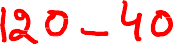 120 - 40